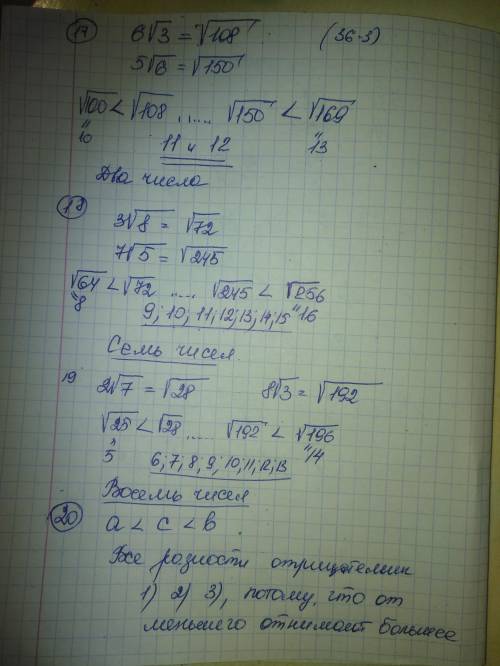 17 6√3 = √108 (36·3)
5√6 = √150
√100 < √108 ..... √150 < √169
"10 11 и 12 "13
Два числа
18
3√8 = √72
7√5 = √245
√64 < √72 ..... √245 < √256
"8 9; 10; 11; 12; 13; 14; 15 "16
Семь чисел.
19 2√7 = √28 8√3 = √192
√25 < √28 ..... √192 < √196
"5 6; 7; 8; 9; 10; 11, 12, 13 "14
Восемь чисел
20 a < c < b
Все разности отрицательны
1) 2) 3), потому, что от
меньшего отнимают большее